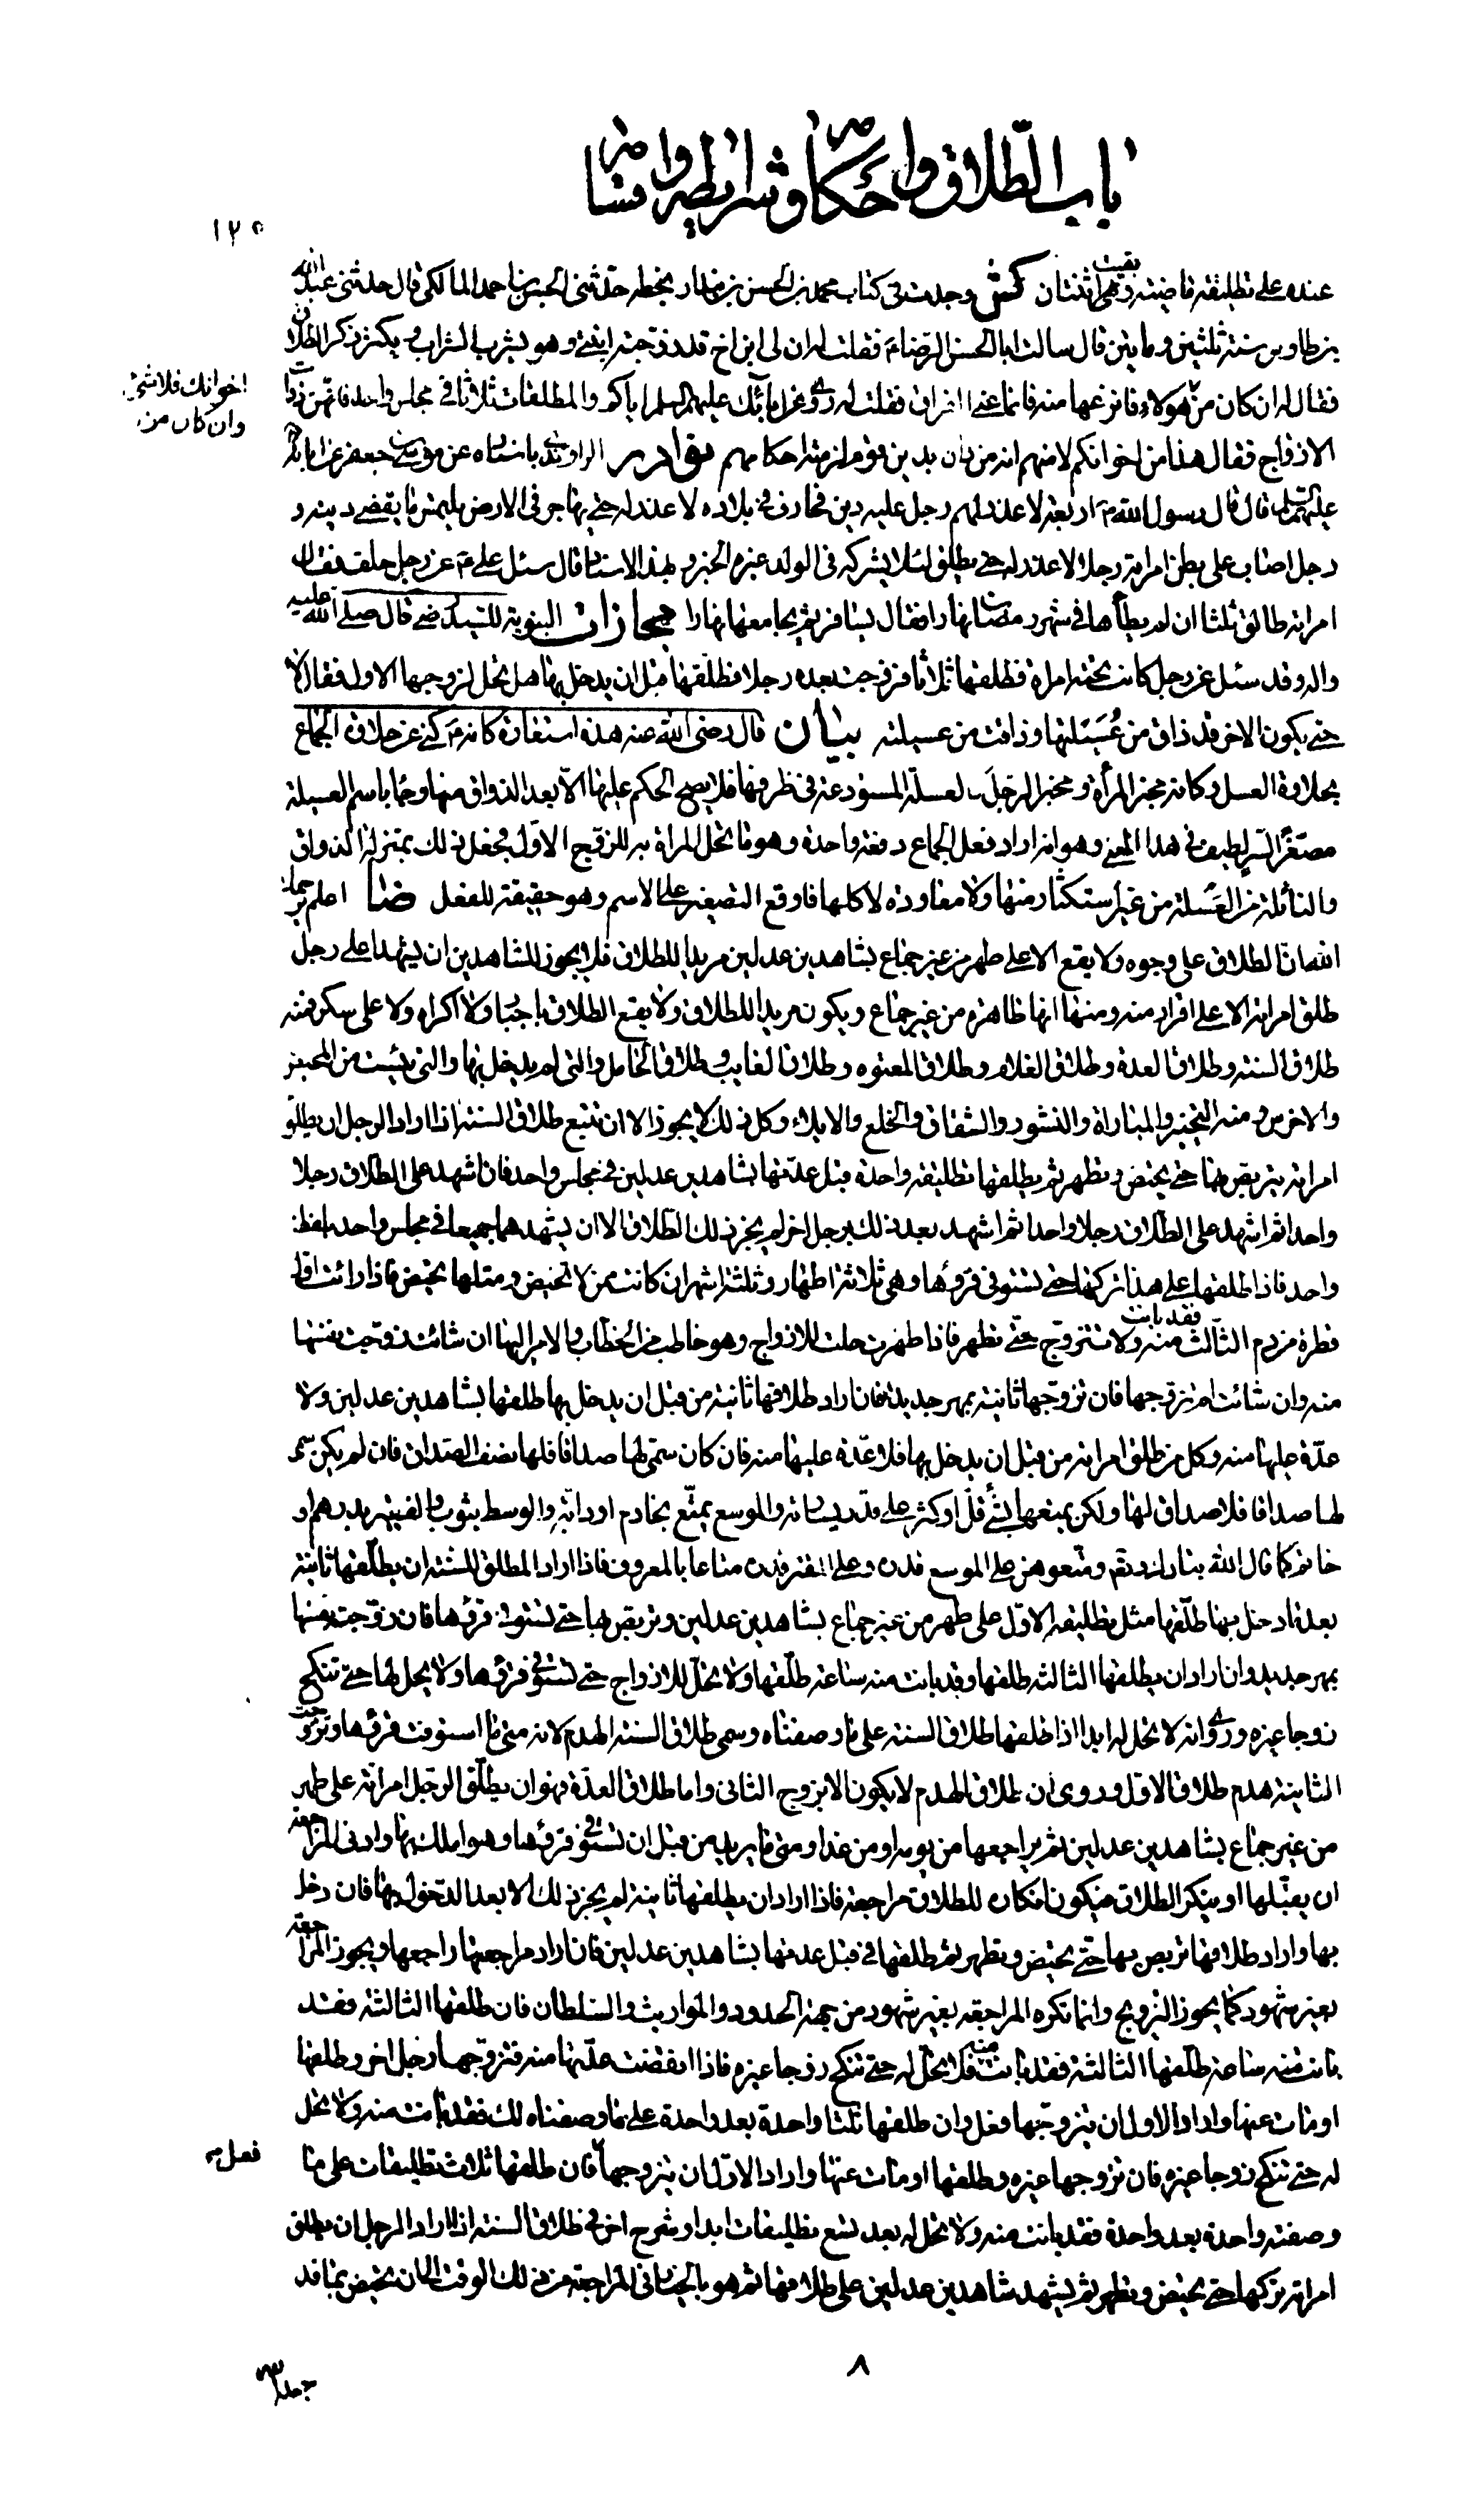 باب الطلاق واحكامه وشرائطه واقسامه
١٢٥
عنده على تطليقة ماضية وبقيت اثنتان كش وجدت في كتاب محمد بن الحسن بن بندار بخطه حدثني الحسن بن احمد المالكي قال حدثني عبد الله
بن طاوس سنة ثلثين ومايتين قال سالت ابا الحسن الرضا ع فقلت له ان لي ابن اخ قد زوجته ابنتي وهو يشرب الشراب ويكثر ذكر الطلاق
فقال له ان كان من هؤلاء فانزعها منه فانما عنى الفراق فقلت له روي عن ابائك عليهم السلم اياكم والمطلقات ثلاثا في مجلس واحد فانهن ذوات
اخوانك فلا شئ
وان كان من
الازواج فقال هذا من اخوانكم لا منهم انه من دان بدين قوم لزمته احكامهم نوادر الراوندي باسناده عن موسى بن جعفر عن ابائه
عليهم السلم قال قال رسول الله ص اربعة لا عذر لهم رجل عليه دين محارف في بلاده لا عذر له حتى يهاجر في الارض يلتمس ما يقضي دينه و
رجل اصاب على بطن امراته رجلا لا عذر له حتى يطلق لئلا يشركه في الولد غيره الخبر وبهذا الاسناد قال سئل علي ع عن رجل حلف فقال
امراته طالق ثلثا ان لم يطأها في شهر رمضان نهارا فقال يسافر ثم يجامعها نهارا مجازات النبوية للسيد رضي قال صلى الله عليه
واله وقد سئل عن رجل كانت تحته امراة فطلقها ثلاثا فتزوجت بعده رجلا فطلقها قبل ان يدخل بها هل تحل لزوجها الاول فقال لا
حتى يكون الاخر قد ذاق من عُسَيلتها وذاقت من عسيلته بيان قال رضي الله عنه هذه استعارة كانه ع كنى عن حلاوة الجماع
بحلاوة العسل وكانه مخبر المرأة ومخبر الرجل كعسلة المستودعة في ظرفها فلا يصح الحكم عليها الا بعد الذواق منها وجاء باسم العسيلة
مصغرا لسر لطيف في هذا المعنى وهو انه اراد فعل الجماع دفعة واحدة وهو ما تحل المراة به للزوج الاول فجعل ذلك بمنزلة الذواق
والنائلة من العسلة من غير استكثار منها ولا معاودة لاكلها فاوقع التصغير على الاسم وهو حقيقة للفعل ضا اعلم يرحمك
الله ان الطلاق على وجوه ولا يقع الا على طهر من غير جماع بشاهدين عدلين مريدا للطلاق فلا يجوز للشاهدين ان يشهدا على رجل
طلق امراته الا على اقرار منه ومنها انها طاهرة من غير جماع ويكون مريدا للطلاق ولا يقع الطلاق باجبار ولا اكراه ولا على سكر فمنه
طلاق السنة وطلاق العدة وطلاق الغلام وطلاق المعتوه وطلاق الغايب وطلاق الحامل والتي لم يدخل بها والتي يئست من المحيض
والاخرس ومنه التخيير والمباراة والنشوز والشقاق والخلع والايلاء وكل ذلك لا يجوز الا ان يتبع طلاق السنة اذا اراد الرجل ان يطلق
امراته يتربص بها حتى تحيض وتطهر ثم يطلقها تطليقة واحدة قبل عدتها بشاهدين عدلين في مجلس واحد فان اشهد على الطلاق رجلا
واحدا ثم اشهد على الطلاق رجلا واحدا ثم اشهد بعد ذلك برجل اخر لم يجز ذلك الطلاق الا ان يشهدهما جميعا في مجلس واحد بلفظ
واحد فاذا طلقها على هذا تركها حتى تستوفي قروءها وهي ثلاثة اطهار وثلثة اشهر ان كانت ممن لا تحيض ومثلها تحيض فاذا رات اول
قطرة من دم الثالث فقد بانت منه ولا تتزوج حتى تطهر فاذا طهرت حلت للازواج وهو خاطب من الخطاب والامر اليها ان شائت زوجت نفسها
منه وان شائت لم تزوجها فان تزوجها ثانية بمهر جديد فان اراد طلاقها ثانية من قبل ان يدخل بها طلقها بشاهدين عدلين ولا
عدة عليها منه وكل من طلق امراته من قبل ان يدخل بها فلا عدة عليها منه فان كان سمى لها صداقا فلها نصف الصداق فان لم يكن سمى
لها صداقا فلا صداق لها ولكن يمتعها بشئ قل او كثر على قدر يساره والموسع يمتع بخادم او دابة والوسط بثوب والفقير بدرهم او
خاتم كما قال الله تبارك وتع ومتعوهن على الموسع قدره وعلى المقتر قدره متاعا بالمعروف فاذا اراد المطلق للسنة ان يطلقها ثانية
بعد ما دخل بها طلقها مثل تطليقة الاول على طهر من غير جماع بشاهدين عدلين وتربص بها حتى تستوفي قروءها فان زوجته نفسها
بمهر جديد وان اراد ان يطلقها الثالثة طلقها وقد بانت منه ساعة طلقها ولا تحل للازواج حتى تستوفي قروءها ولا يحل لها حتى تنكح
زوجا غيره وروي انه لا تحل له ابدا اذا طلقها طلاق السنة على ما وصفناه وسمي طلاق السنة الهدم لانه متى ما استوفت قروءها وتزوجت
الثانية هدم طلاق الاول وروي ان طلاق الهدم لا يكون الا بزوج الثاني واما طلاق العدة فهو ان يطلق الرجل امراته على طهر
من غير جماع بشاهدين عدلين ثم يراجعها من يومه او من غد او متى ما يريد من قبل ان تستوفي قروءها وهو املك بها وادنى المراجعة
ان يقبلها او ينكر الطلاق فيكون انكار الطلاق مراجعة فاذا اراد ان يطلقها ثانية لم يجز ذلك الا بعد الدخول بها فان دخل
بها واراد طلاقها تربص بها حتى تحيض وتطهر ثم طلقها في قبل عدتها بشاهدين عدلين فان اراد مراجعتها راجعها ويجوز المراجعة
بغير شهود كما يجوز التزويج وانما تكره المراجعة بغير شهود من جهة الحدود والمواريث والسلطان فان طلقها الثالثة فقد
بانت منه ساعة طلقها الثالثة فقد بانت منه فلا تحل له حتى تنكح زوجا غيره فاذا انقضت عدتها منه فتزوجها رجل اخر وطلقها
او مات عنها واراد الاول ان يتزوجها فعل وان طلقها ثلثا واحدة بعد واحدة على ما وصفناه لك فقد بانت منه ولا تحل
له حتى تنكح زوجا غيره فان تزوجها غيره وطلقها او مات عنها واراد الاول ان يتزوجها فان طلقها ثلاث تطليقات على ما
فعل
وصفته واحدة بعد واحدة فقد بانت منه ولا تحل له بعد تسع تطليقات ابدا وشرح اخر في طلاق السنة اذا اراد الرجل ان يطلق
امراته تركها حتى تحيض وتطهر ثم يشهد شاهدين عدلين على طلاقها ثم هو بالخيار في المراجعة من ذلك الوقت الى ان تحيض بما قد
٨